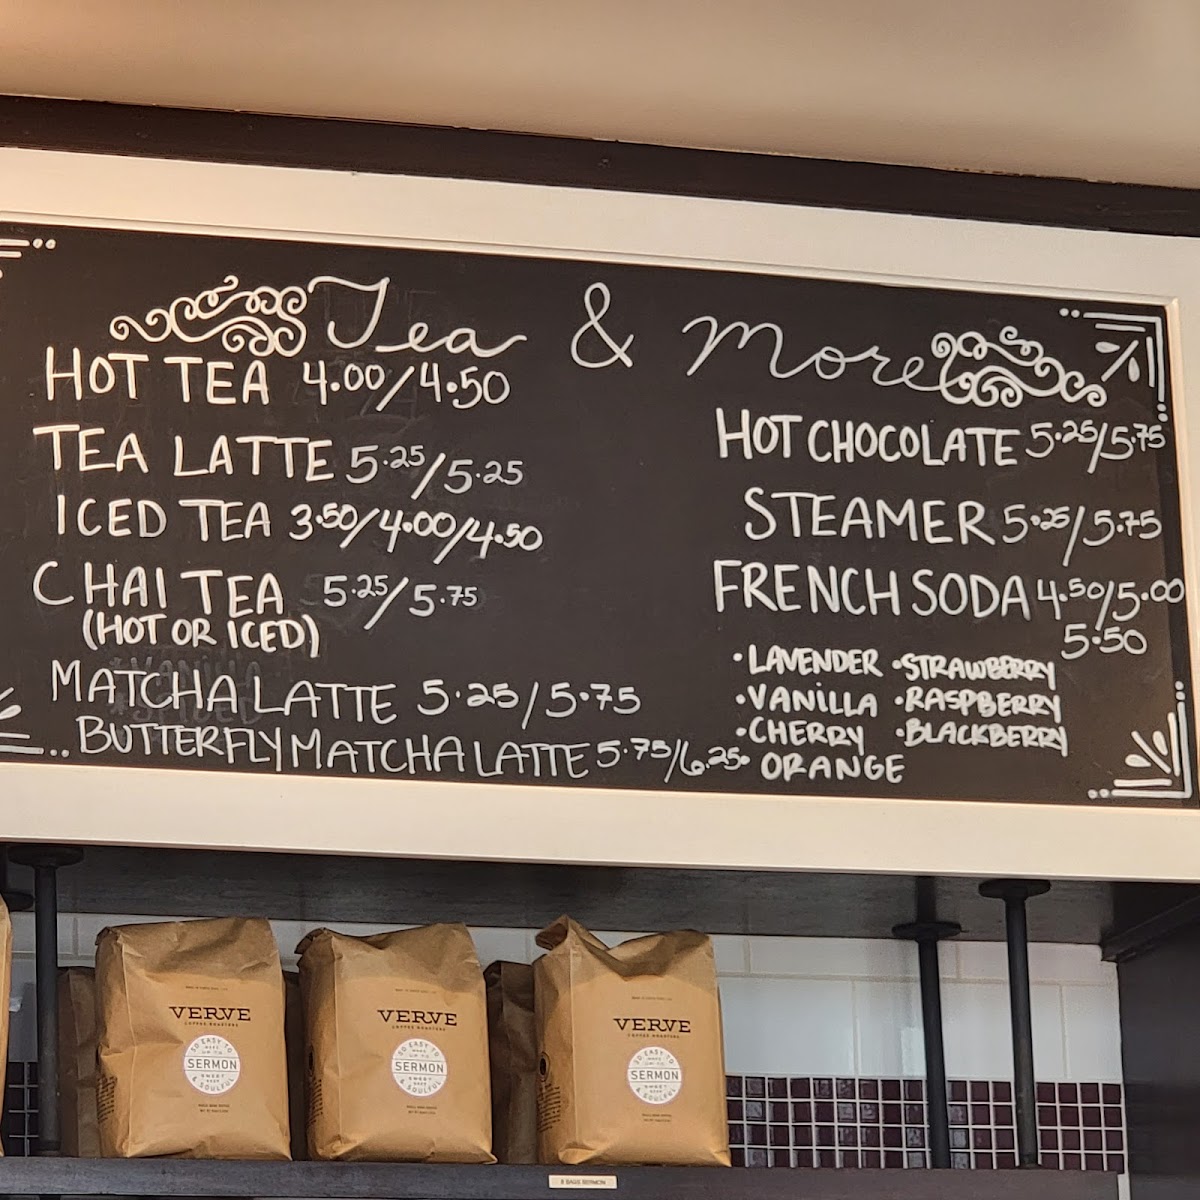 Tea & More
HOT TEA 4.00/4.50
TEA LATTE 5.25/5.25
ICED TEA 3.50/4.00/4.50
CHAI TEA 5.25/5.75
(HOT OR ICED)
MATCHA LATTE 5.25/5.75
BUTTERFLY MATCHA LATTE 5.75/6.25
HOT CHOCOLATE 5.25/5.75
STEAMER 5.25/5.75
FRENCH SODA 4.50/5.00
5.50
• LAVENDER • STRAWBERRY
• VANILLA • RASPBERRY
• CHERRY • BLACKBERRY
• ORANGE
VERVE
COFFEE ROASTERS
SO EASY TO
WAKE
UP TO
SERMON
SWEET
DEEP
& SOULFUL
VERVE
COFFEE ROASTERS
SO EASY TO
WAKE
UP TO
SERMON
SWEET
DEEP
& SOULFUL
VERVE
COFFEE ROASTERS
SO EASY TO
WAKE
UP TO
SERMON
SWEET
DEEP
& SOULFUL